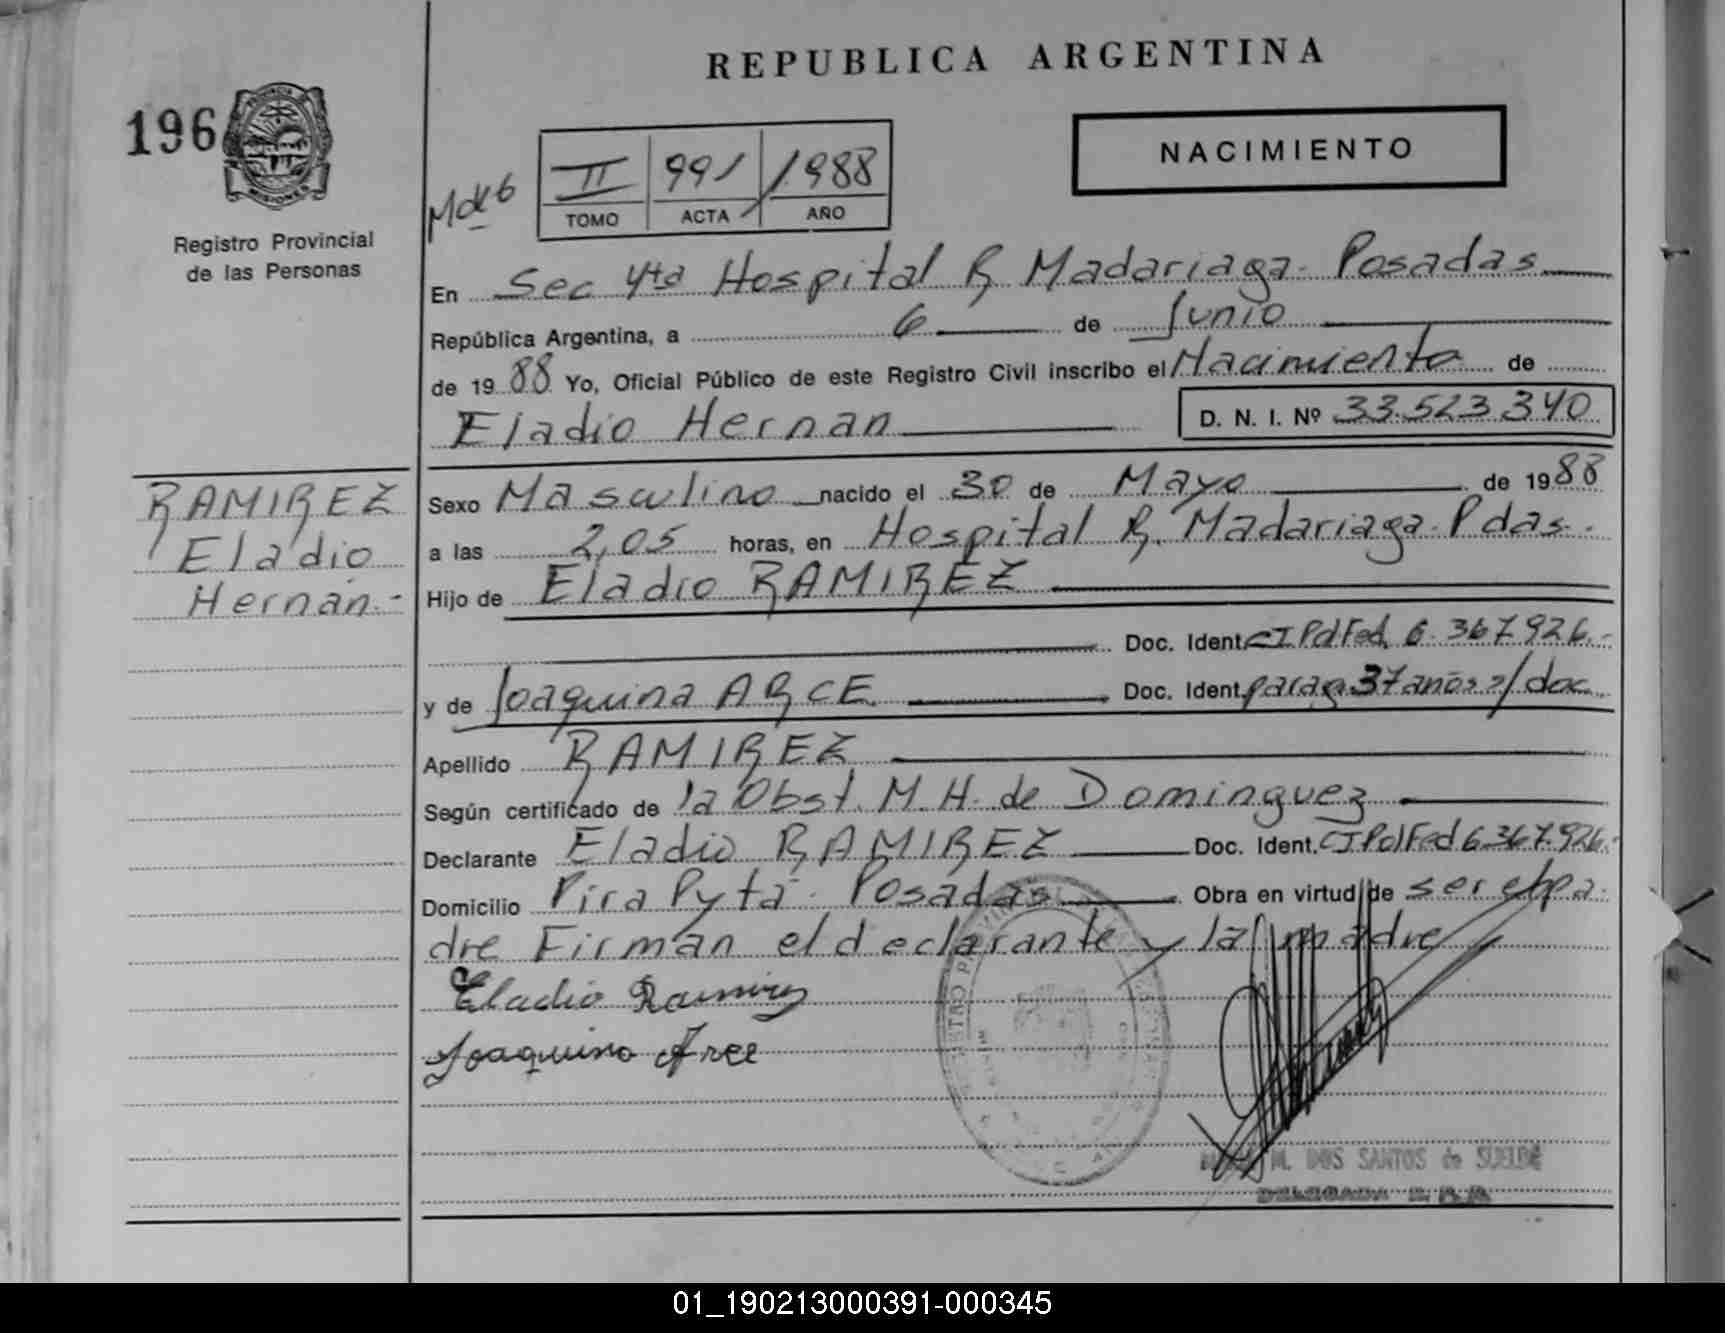 REPUBLICA ARGENTINA
196
PROVINCIA DE MISIONES
Registro Provincial
de las Personas
NACIMIENTO
II 991 1988
TOMO ACTA AÑO
En Sec 4ta Hospital R. Madariaga - Posadas
República Argentina, a 6 de Junio
de 1988 Yo, Oficial Público de este Registro Civil inscribo el Nacimiento de
Eladio Hernan D. N. I. Nº 33.523.340
RAMIREZ
Eladio
Hernán.-
Sexo Masculino nacido el 30 de Mayo de 1988
a las 2,05 horas, en Hospital R. Madariaga - Pdas.
Hijo de Eladio RAMIREZ
Doc. Ident. CI Pol Fed. 6.367.926.-
y de Joaquina ARCE Doc. Ident. parag. 37 años s/doc.
Apellido RAMIREZ
Según certificado de la Obst. M. H. de Dominguez
Declarante Eladio RAMIREZ Doc. Ident. CI Pol Fed 6.367.926.-
Domicilio Pira Pytá - Posadas Obra en virtud de ser el pa-
dre Firman el declarante y la madre
Eladio Ramirez
Joaquina Arce
M. DOS SANTOS de SUELDE
DELEGADA R. P. P.
01_190213000391-000345